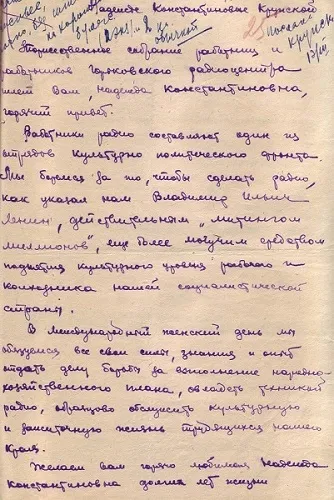 Надежде Константиновне Крупской
Торжественное собрание работниц и
работников горьковского радиоцентра
шлет Вам, Надежда Константиновна,
горячий привет.
Работники радио составляют один из
отрядов культурно политического фронта.
Мы боремся за то, чтобы сделать радио,
как указал нам Владимир Ильич
Ленин, действительным „митингом
миллионов", еще более могучим средством
поднятия культурного уровня рабочего и
колхозника нашей социалистической
страны.
В международный женский день мы
обязуемся все свои силы, знания и опыт
отдать делу борьбы за выполнение народно-
хозяйственного плана, овладеть техникой
радио, образцово обслужить культурную
и зажиточную жизнь трудящихся нашего
края.
Желаем вам горячо любимая Надежда
Константиновна долгих лет жизни